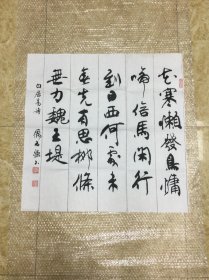 花寒懶發鳥慵
啼信馬閑行
到日西何處未
春先有思柳條
無力魏王堤
白居易诗